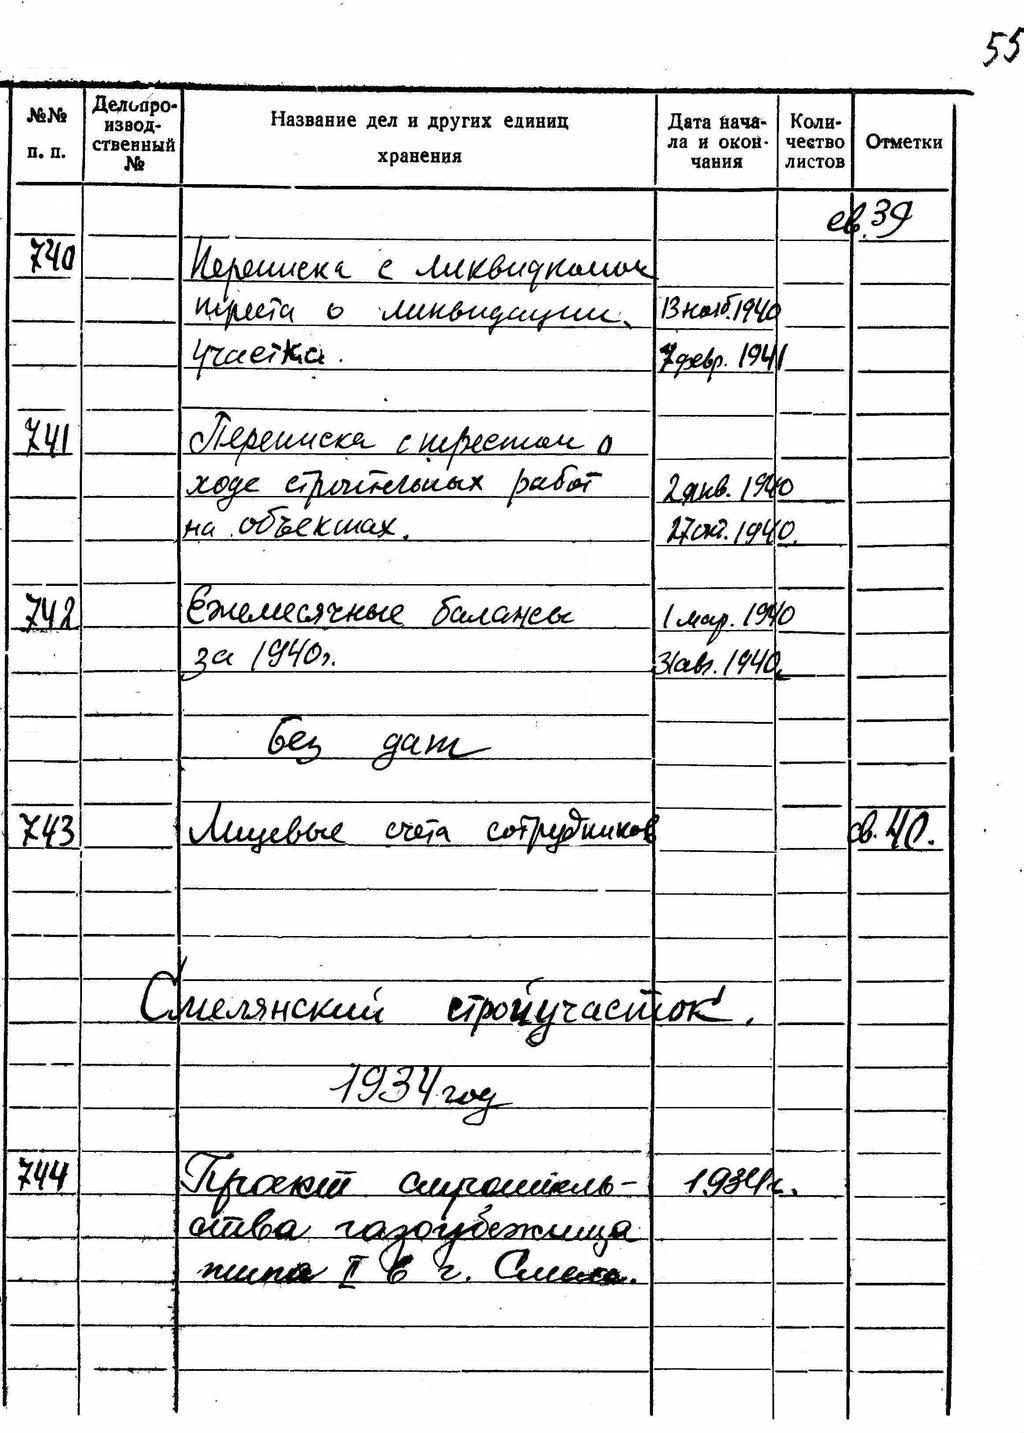 55
№№ п. п. Делопроизводственный № Название дел и других единиц хранения Дата начала и окончания Количество листов Отметки
св. 39
740 Переписка с ликвидкомом
треста о ликвидации 13 нояб. 1940
участка. 7 февр. 1941
741 Переписка с трестом о
ходе строительных работ 2 янв. 1940
на объектах. 27 окт. 1940.
742 Ежемесячные балансы 1 мар. 1940
за 1940г. 31 авг. 1940.
Без дат
743 Лицевые счета сотрудников св. 40.
Смелянский стройучасток.
1934 год
744 Проект строитель- 1934г.
ства газоубежища
типа II в г. Смела.